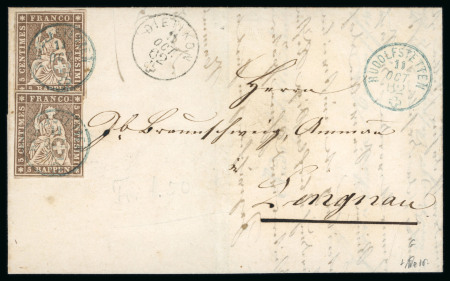 FRANCO
5 CENTIMES
CENTESIMI
5 RAPPEN
FRANCO
5 CENTIMES
CENTESIMI
5 RAPPEN
DIETIKON
11
OCT
62
RUDOLFSTETTEN
11
OCT
62
Herrn
Jb. Braunschweig, Ammann
Lengnau